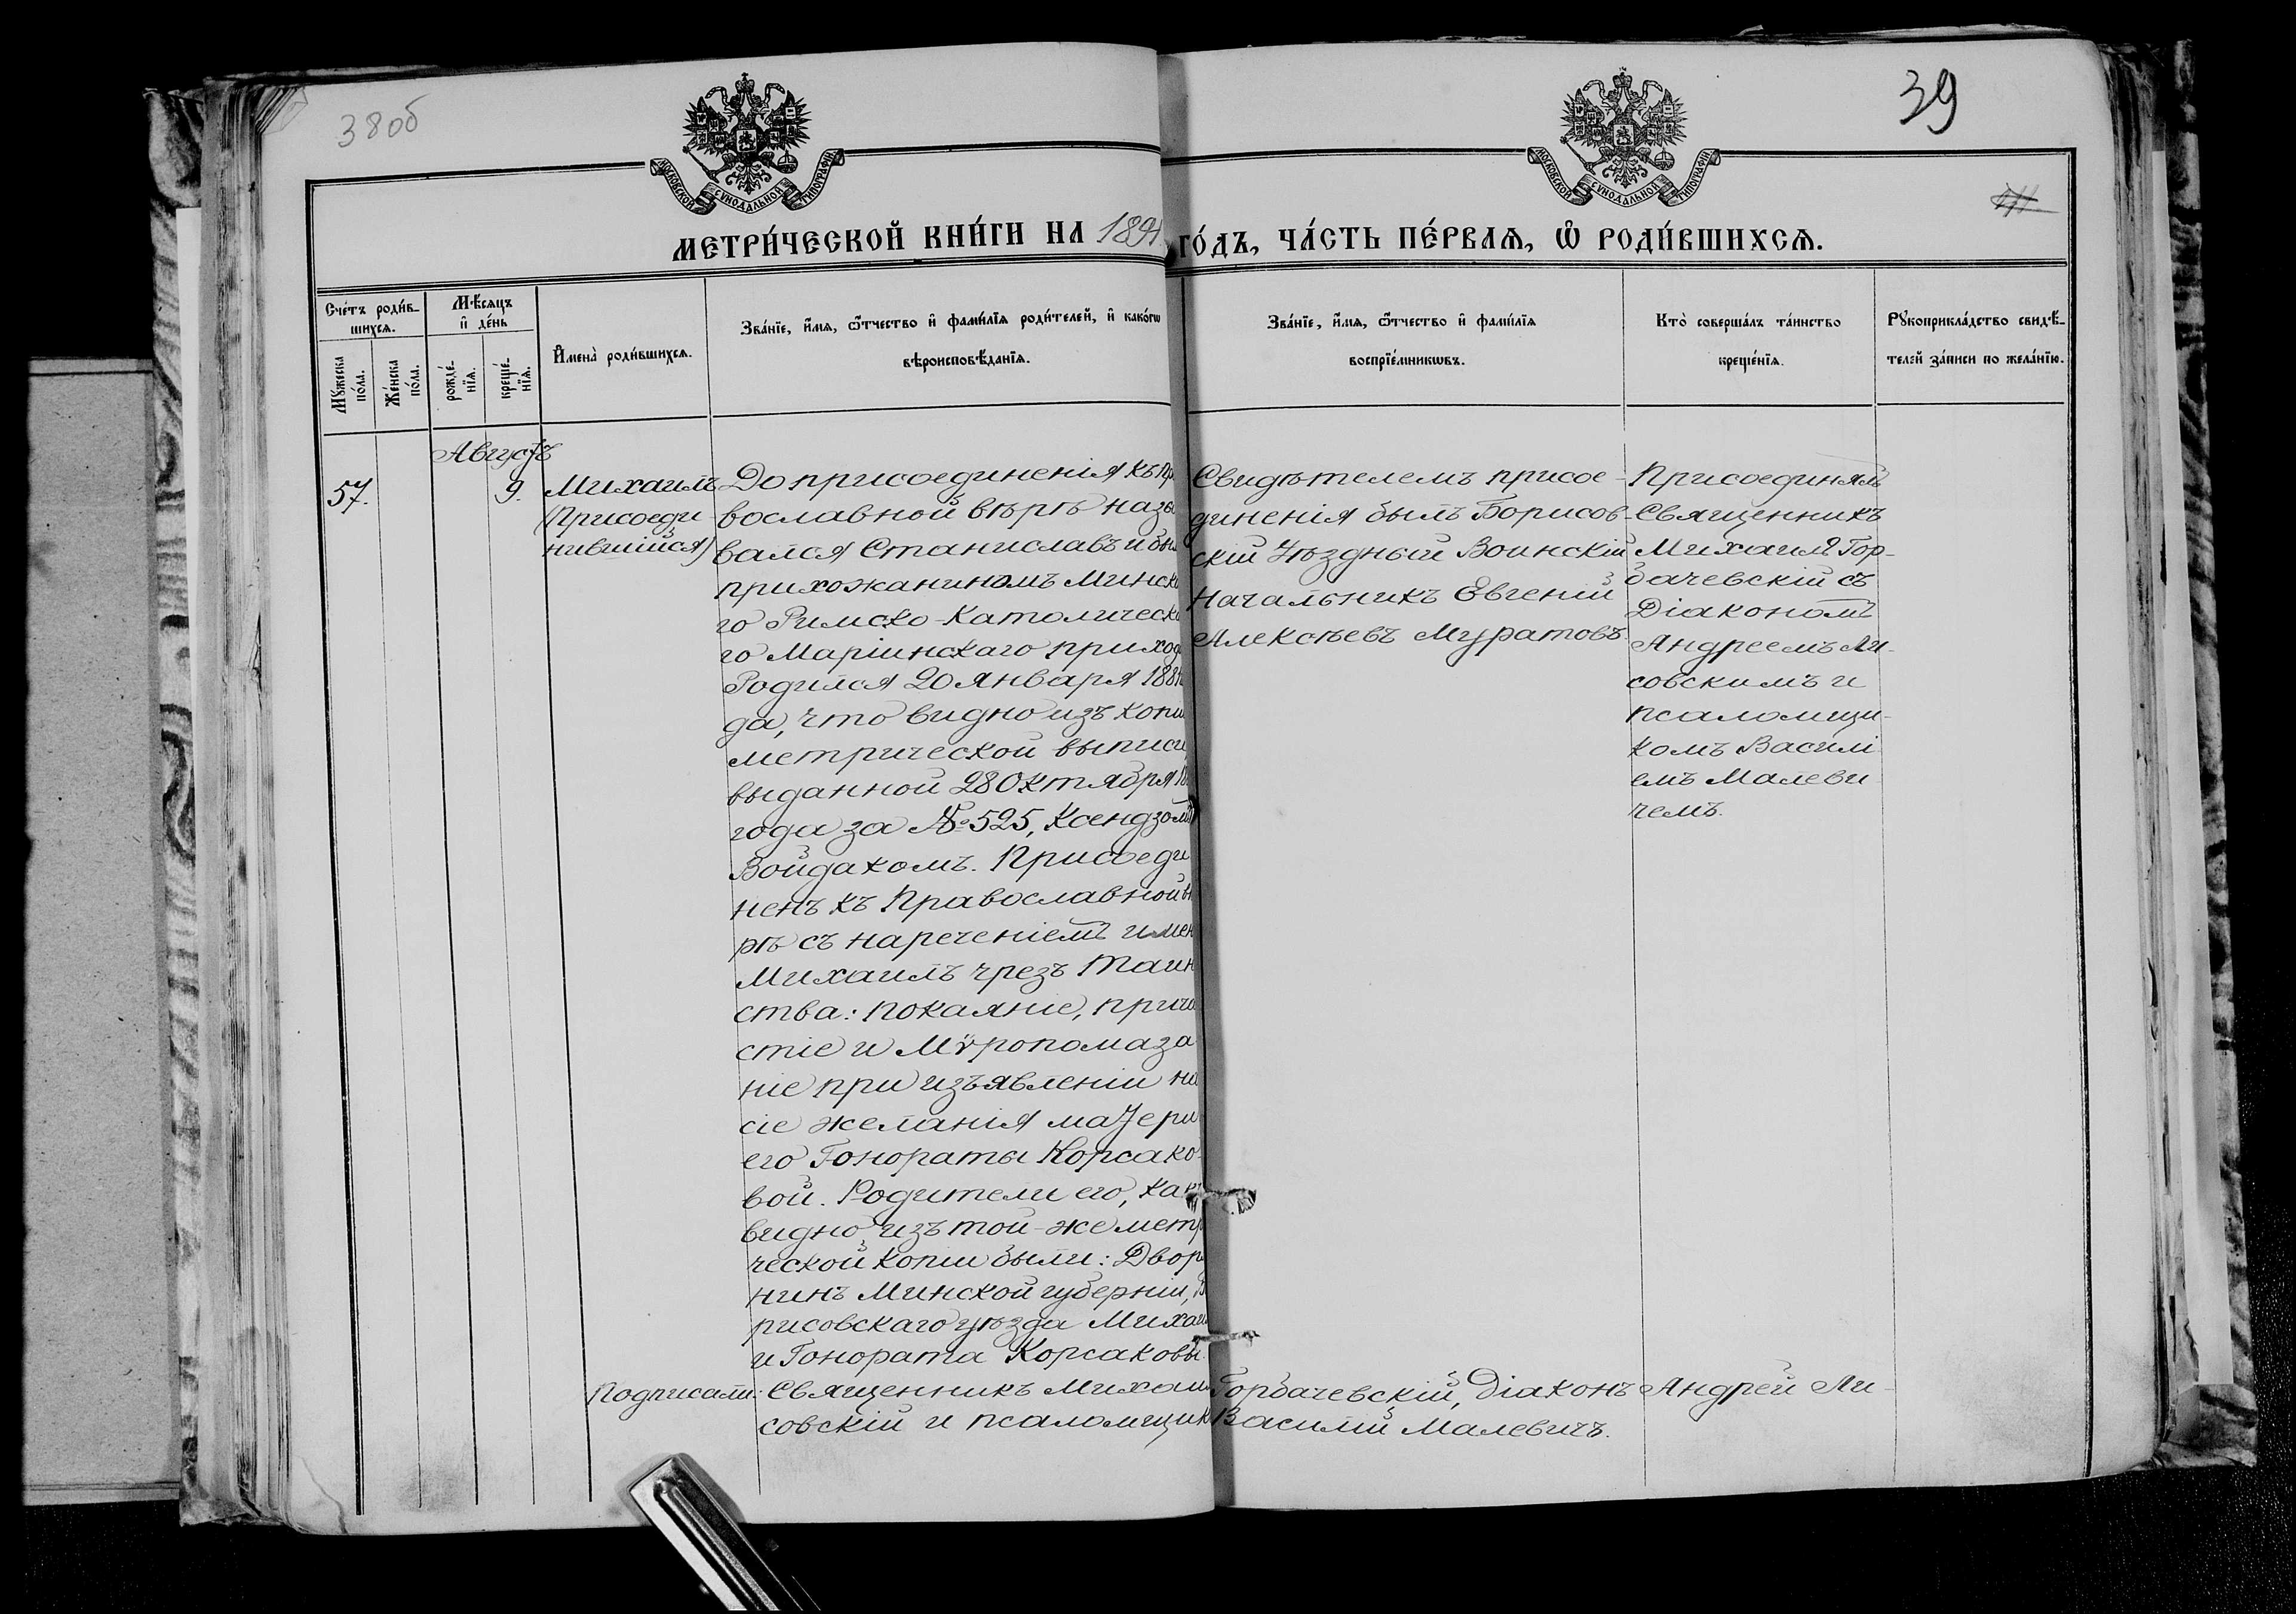 38об
39
МОСКОВСКОЙ СУНОДАЛЬНОЙ ТИПОГРАФІИ
МОСКОВСКОЙ СУНОДАЛЬНОЙ ТИПОГРАФІИ
МЕТРИ́ЧЕСКОЙ КНИ́ГИ НА 1891 ГО́ДЪ, ЧА́СТЬ ПЕ́РВАѦ, Ѡ҆ РОДИ́ВШИХСѦ.
Сче́тъ роди́в-
шихсѧ.
Мѣ́сѧцъ
и҆ де́нь
Мꙋ́жеска
по́ла.
Же́нска
по́ла.
рожде́-
нїѧ.
креще́-
нїѧ.
И҆мена̀ роди́вшихсѧ.
Зва́нїе, и҆́мѧ, ѻ҆́тчество и҆ фами́лїѧ роди́телей, и҆ како́гѡ
вѣроисповѣ́данїѧ.
Зва́нїе, и҆́мѧ, ѻ҆́тчество и҆ фами́лїѧ
воспрїе́мникѡвъ.
Кто̀ соверша́лъ та́инство
креще́нїѧ.
Рꙋкоприкла́дство свидѣ́-
телей за́писи по жела́нїю.
Августъ
57.
9.
Михаилъ
(Присоеди
нившійся)
До присоединенія къ Пр
вославной вѣрѣ назы
вался Станиславъ и бы
прихожаниномъ Минска
го Римско-Католическа
го Маріинскаго прихо
Родился 20 Января 188
да, что видно изъ копи
метрической выписи
выданной 28 Октября 18
года за № 525, Ксендзомъ
Войдакомъ. Присоеди
ненъ къ Православной в
рѣ съ нареченіемъ имен
Михаилъ чрезъ Таин
ства: покаяніе, прича
стіе и Мѵропомаза
ніе при изъявленіи на
сіе желанія матери
его Гонораты Корсако-
вой. Родители его, какъ
видно изъ той-же метр
ческой копіи были: Двор
нинъ Минской губерніи, Б
рисовскаго уѣзда Михаи
и Гонората Корсаковы.
Свидѣтелемъ присое-
диненія былъ Борисов-
скій Уѣздный Воинскій
Начальникъ Евгеній
Алексѣевъ Муратовъ.
Присоединялъ
Священникъ
Михаилъ Гор-
бачевскій съ
Діакономъ
Андреемъ Ли-
совскимъ и
псаломщи-
комъ Василі
емъ Малеви
чемъ.
Подписали: Священникъ Михаил Горбачевскій, Діаконъ Андрей Ли-
совскій и псаломщик Василій Малевичъ.